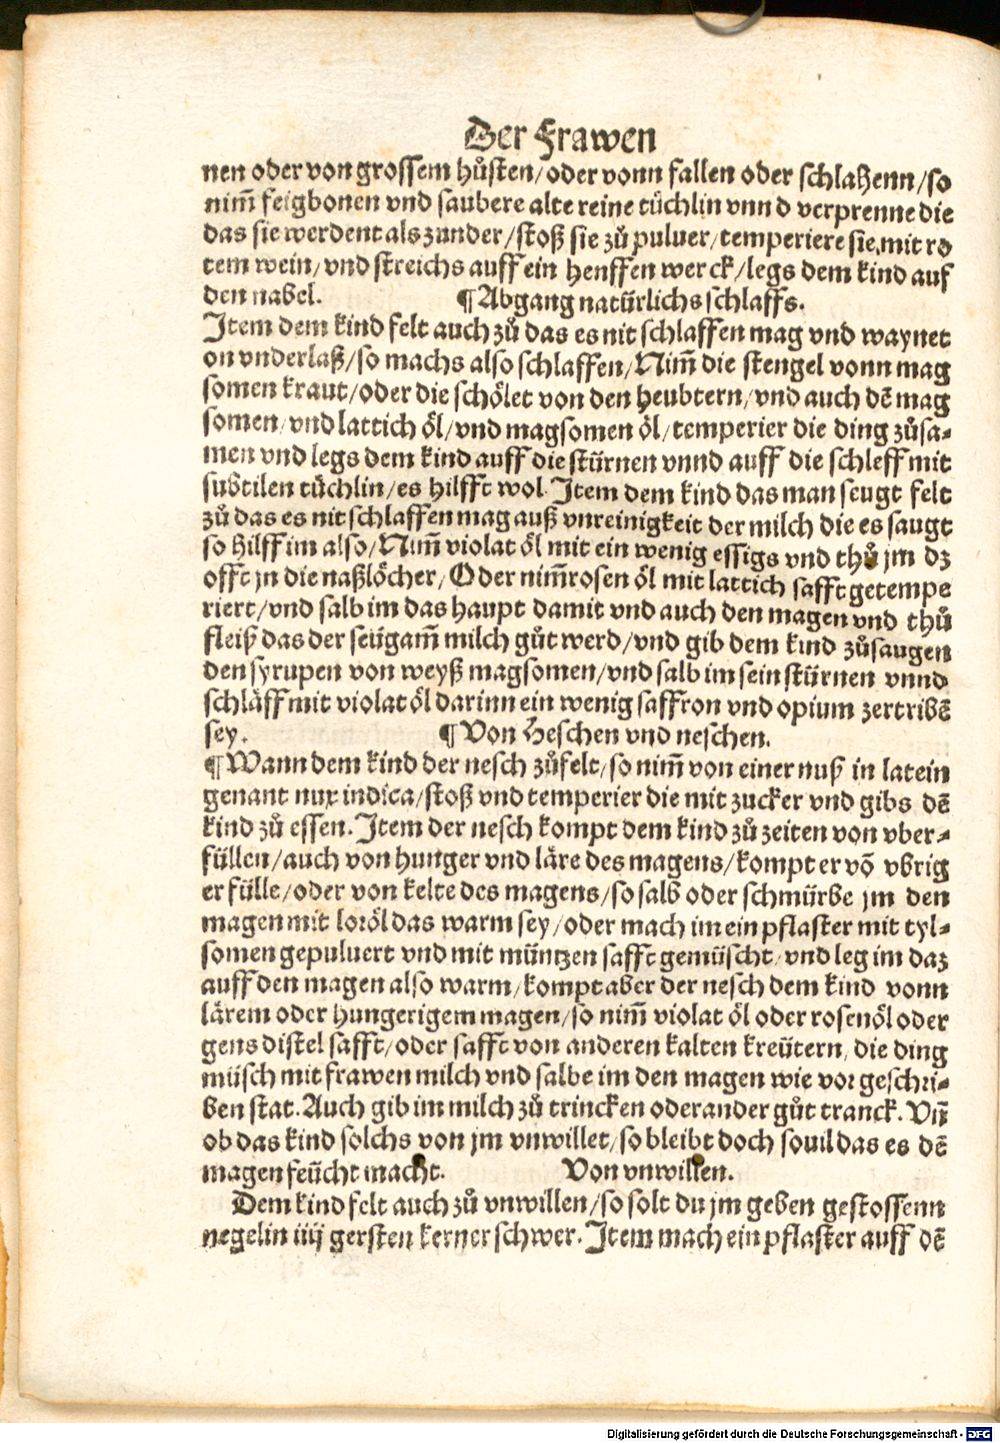 Der Frawen
nen oder von grossem hůsten/oder vonn fallen oder schlahenn/so
nim̄ feigbonen vnd saubere alte reine tüchlin vnn d verprenne die
das sie werdent als zunder/stoß sie zů puluer/temperiere sie mit ro
tem wein/vnd streichs auff ein henffen werck/legs dem kind auf
den nabel. ¶Abgang natürlichs schlaffs.
Item dem kind felt auch zů das es nit schlaffen mag vnd waynet
on vnderlaß/so machs also schlaffen/Nim̄ die stengel vonn mag
somen kraut/oder die schölet von den heubtern/vnd auch dē mag
somen/vnd lattich öl/vnd magsomen öl/temperier die ding zůsa-
men vnd legs dem kind auff die stürnen vnnd auff die schleff mit
subtilen tüchlin/es hilfft wol. Item dem kind das man seugt felt
zů das es nit schlaffen mag auß vnreinigkeit der milch die es saugt
so hilff im also/Nim̄ violat öl mit ein wenig essigs vnd thů jm dz
offt jn die naßlöcher/Oder nim̄ rosen öl mit lattich safft getempe
riert/vnd salb im das haupt damit vnd auch den magen vnd thů
fleiß das der seügam̄ milch gůt werd/vnd gib dem kind zůsaugen
den syrupen von weyß magsomen/vnd salb im sein stürnen vnnd
schläff mit violat öl darinn ein wenig saffron vnd opium zertribē
sey. ¶Von Heschen vnd neschen.
¶Wann dem kind der nesch zůfelt/so nim̄ von einer nuß in latein
genant nux indica/stoß vnd temperier die mit zucker vnd gibs dē
kind zů essen. Item der nesch kompt dem kind zů zeiten von vber-
füllen/auch von hunger vnd läre des magens/kompt er vō vbrig
er fülle/oder von kelte des magens/so salb oder schmürbe jm den
magen mit loröl das warm sey/oder mach im ein pflaster mit tyl-
somen gepuluert vnd mit müntzen safft gemüscht/vnd leg im daz
auff den magen also warm/kompt aber der nesch dem kind vonn
lärem oder hungerigem magen/so nim̄ violat öl oder rosenöl oder
gens distel safft/oder safft von anderen kalten kreütern/die ding
müsch mit frawen milch vnd salbe im den magen wie vor geschri-
ben stat. Auch gib im milch zů trincken oder ander gůt tranck. Vn̄
ob das kind solchs von jm vnwillet/so bleibt doch souil das es dē
magen feücht macht. Von vnwillen.
Dem kind felt auch zů vnwillen/so solt du jm geben gestossenn
negelin iiij gersten kerner schwer. Item mach ein pflaster auff dē
Digitalisierung gefördert durch die Deutsche Forschungsgemeinschaft - DFG